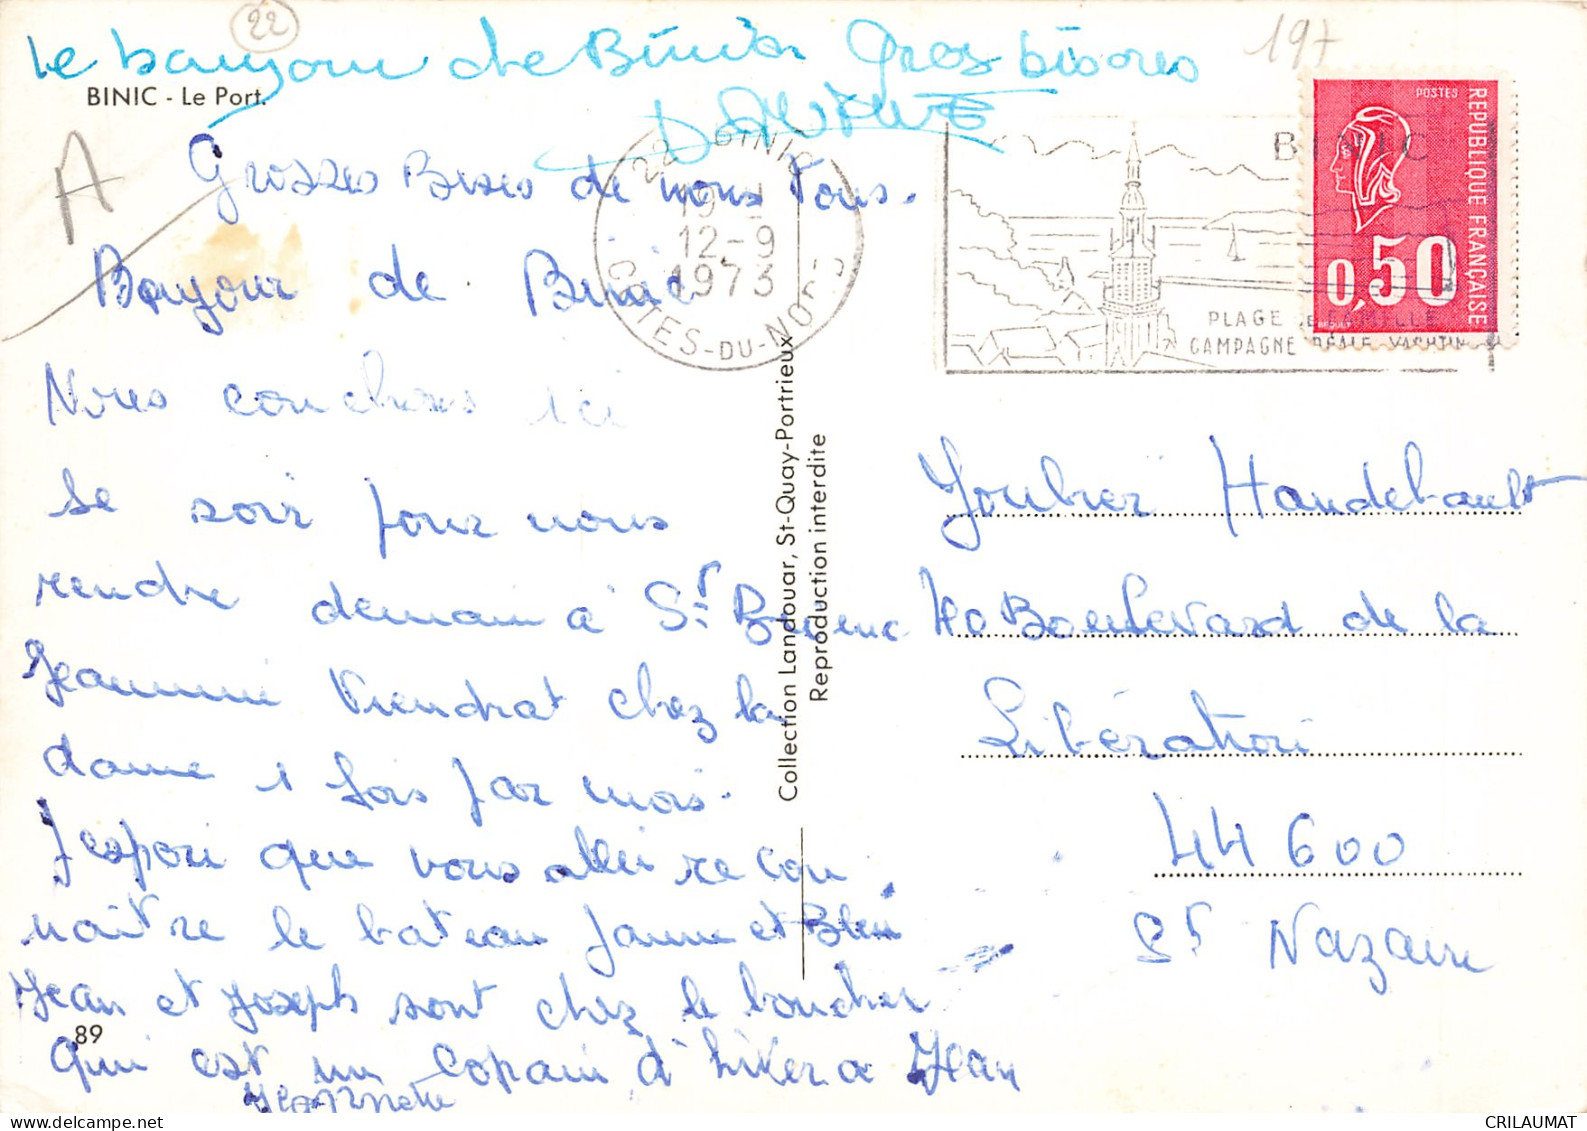 22
197
Le bonjour de Binic Gros bisous
BINIC - Le Port.
A
Grosses Bises de nous Tous.
Bonjour de Binic
Nous couchons ici
se soir pour nous
rendre demain à St Brieuc
Jeannine viendrat chez la
dame 1 fois par mois.
J'espere que vous allei recon
naitre le bateau Jaune et Bleu
Jean et Joseph sont chez le boucher
Qui est un copain d'hiver a Jean
Jeannette
89
22 BINIC
19 H
12-9
1973
COTES-DU-NORD
BINIC
PLAGE de FAMILLE
CAMPAGNE REALE YACHTING
POSTES
REPUBLIQUE FRANÇAISE
0,50
BEQUET
Collection Landouar, St-Quay-Portrieux
Reproduction interdite
Joubier Handebault
40 Boulevard de la
Libération
44 600
St Nazaire
CRILAUMAT